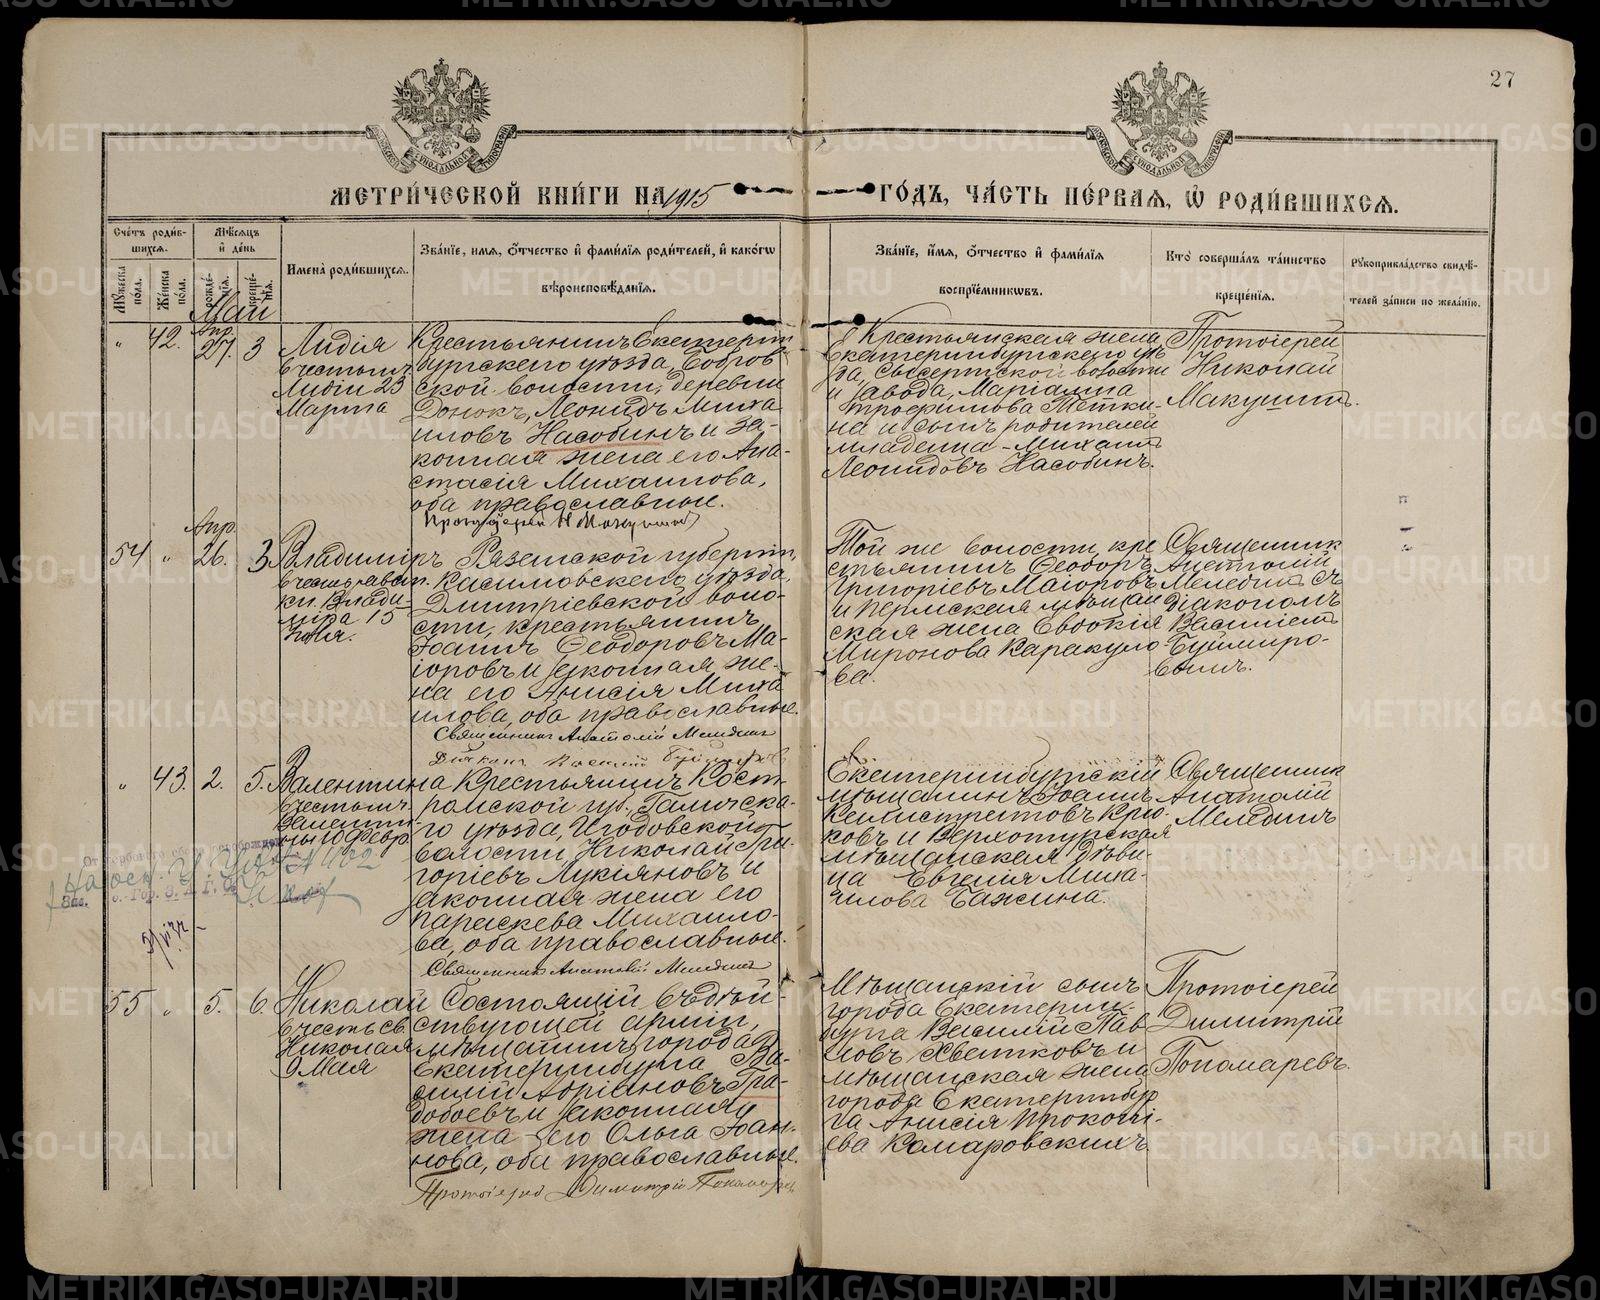 27
МЕТРИ́ЧЕСКОЙ КНИ́ГИ НА 1915 ГО́ДЪ, ЧА́СТЬ ПЕ́РВАЯ, Ѡ РОДИ́ВШИХСЯ.
Сче́тъ роди́в-
шихся.
Му́жеска
пола.
Же́нска
по́ла.
Мѣ́сяцъ
и̑ де́нь
рожде́-
нїя.
креще́-
нїя.
И̑мена̀ роди́вшихся.
Зва́нїе, и́мя, ѻ́тчество и̑ фами́лїя роди́телей, и̑ како́гѡ
вѣроисповѣ́данїя.
Зва́нїе, и́мя, ѻ́тчество и̑ фами́лїя
воспрїе́мниковъ.
Кто̀ соверша́лъ та́инство
креще́нїя.
Рꙋкоприкла́дство свидѣ́-
телей за́писи по жела́нїю.
Май
"
42.
Апр.
27.
3
Лидія
въ честь мч.
Лидіи 23
Марта
Крестьянинъ Екатерин
бургскаго уѣзда, Бобров
ской волости, деревни
Донокъ, Леонидъ Миха
иловъ Насобинъ и за-
конная жена его Ана-
стасія Михаилова,
оба православные.
Протоіерей Н Макушинъ
Крестьянская жена
Екатеринбургскаго уѣ
зда, Сысертской волости
и завода, Маріанна
Трофимова Теткина
на и сынъ родителей
младенца - Михаилъ
Леонидовъ Насобинъ.
Протоіерей
Николай
Макушинъ.
54
"
Апр.
26.
3
Владиміръ
въ честь равноап.
кн. Влади-
міра 15
Іюля.
Рязанской губерніи,
Касимовскаго уѣзда,
Дмитріевской воло-
сти, крестьянинъ
Іоаннъ Ѳеодоровъ Ма-
іоровъ и законная же-
на его Анисія Миха
илова, оба православные.
Священникъ Анатолій Мелединъ
Діаконъ Василій Буймировъ
Той же волости, кре
стьянинъ Ѳеодоръ
Григоріевъ Маіоровъ
и Пермская мѣщан
ская жена Евдокія
Миронова Каракуло-
ва.
Священник
Анатолій
Меледин съ
діакономъ
Василіемъ
Буймиро-
вымъ.
"
43.
2.
5.
Валентина
въ честь мч.
Валенти-
ны 10 Февр.
Крестьянинъ Кост
ромской губ., Галичска-
го уѣзда, Игодовской
волости, Николай Гри-
горіевъ Лукіяновъ и
законная жена его
Параскева Михаило-
ва, оба православные.
Священникъ Анатолій Мелединъ
Екатеринбургскій
мѣщанинъ Іоаннъ
Каллистратовъ Крю
ковъ и Верхотурская
мѣщанская дѣви-
ца Евгенія Миха-
илова Бажина.
Священник
Анатолій
Мелединъ
55
"
5.
6.
Николай
въ честь св.
Николая
9 Мая
Состоящій въ дѣй-
ствующей арміи,
мѣщанинъ города
Екатеринбурга Ва-
силій Адріановъ Гра-
добоевъ и законная
жена его Ольга Іоан-
нова, оба православные.
Протоіерей Димитрій Пономаревъ
Мѣщанскій сынъ
города Екатерин-
бурга Василій Пав
ловъ Хвѣтковъ и
мѣщанская жена
города Екатеринбур
га Анисія Прокопі-
ева Комаровскихъ.
Протоіерей
Димитрій
Пономаревъ.
METRIKI.GASO-URAL.RU